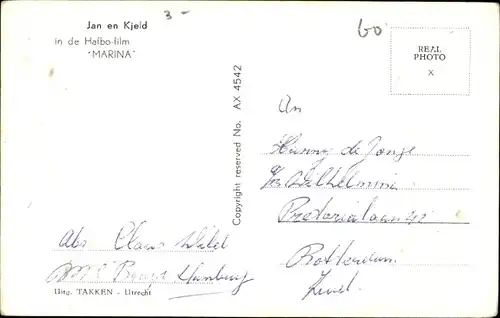 Jan en Kjeld
in de Halbo-film
"MARINA"
3 -
60
REAL
PHOTO
X
Copyright reserved No. AX 4542
An
Hanny de Jonge
Wilhelmina
Pretorialaan
Rotterdam
Abs Claus
Hamburg
Uitg. TAKKEN - Utrecht